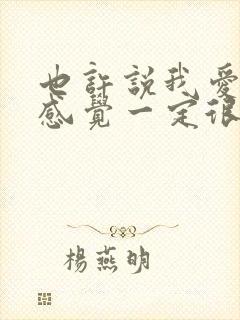 也許説我愛
感覺一定很
楊燕明